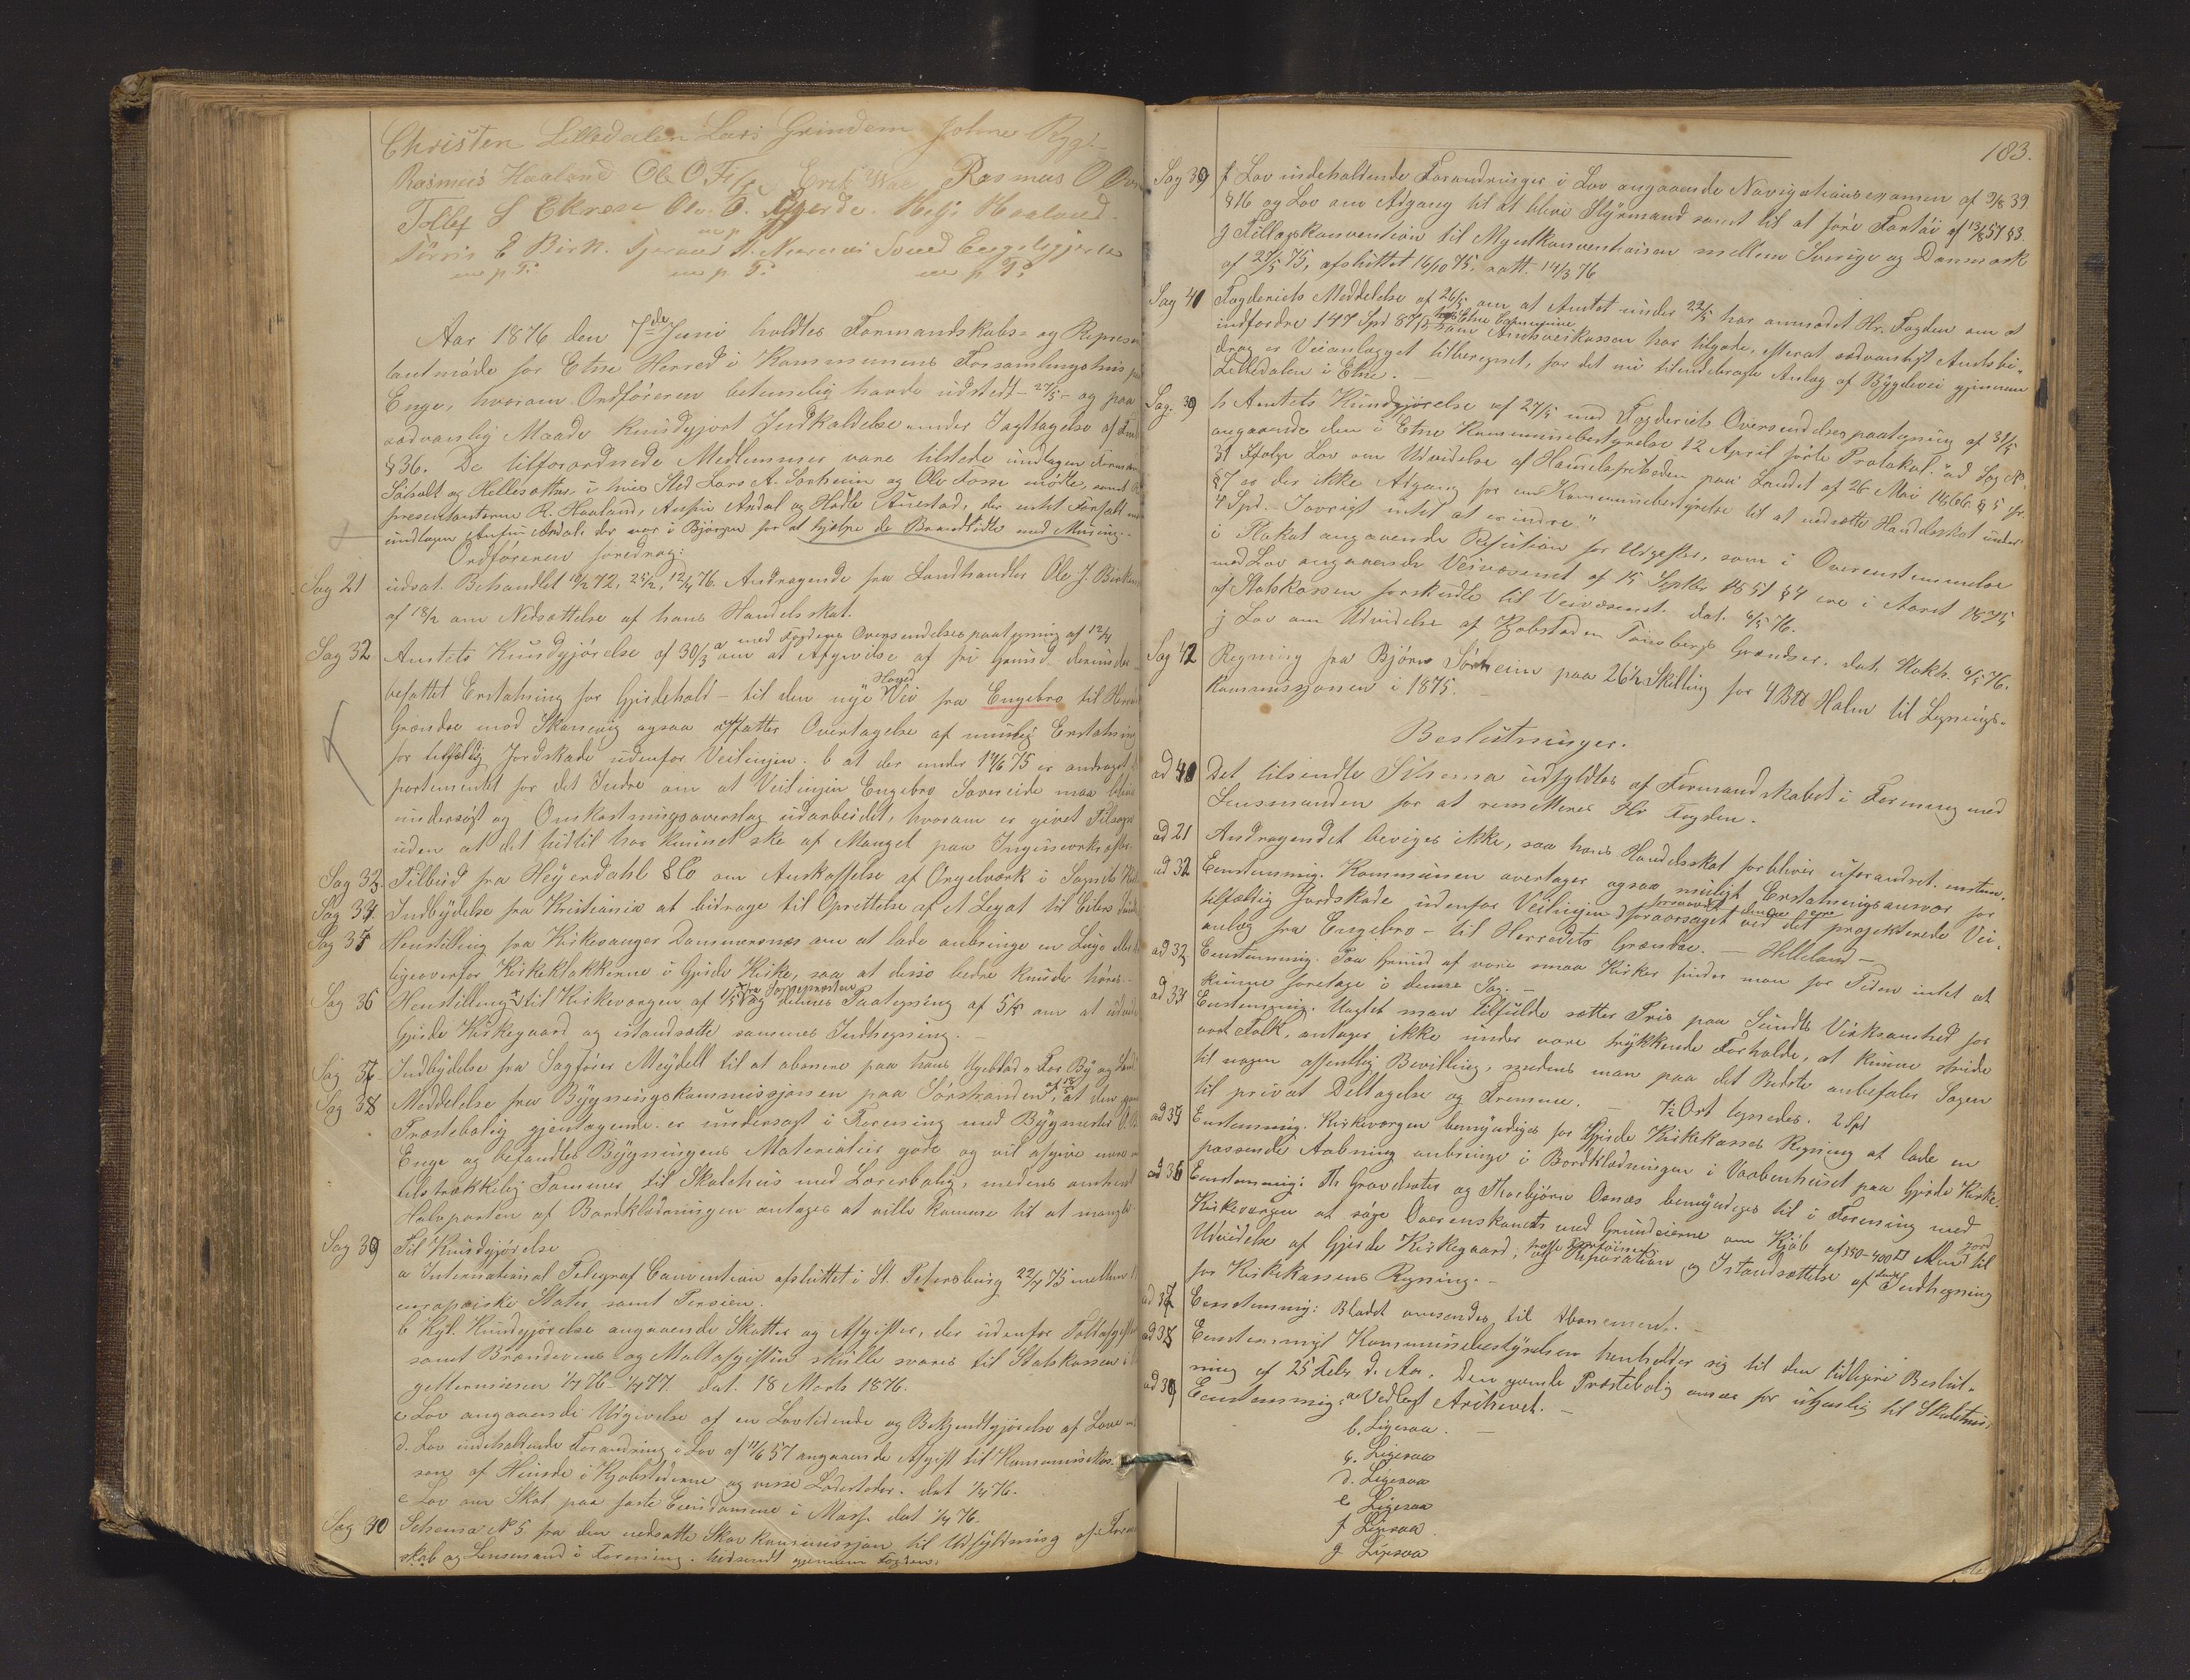 Christen Lilledalen Lars Grindem Johne Rygg
Rasmus Haaland Ole O. Erik Rasmus O
Tollef S Ekren Ole. O. Gjerde. Helje Haaland.
Tørris E Birk. Svend Engelsgjerde
m p. P. m p. P. m p. P.
Aar 1876 den 7de Juni holdtes Formandskabs- og Represen
tantmøde for Etne Herred i Kommunens Forsamlingshus paa
Enge, hvorom Ordføreren betimelig havde udstedt - 27/5 - og paa
sædvanlig Maade kundgjort Indkaldelse under Iagttagelse af
§ 36. De tilforordnede Medlemmer vare tilstede undtagen
og i hvis Sted Lars A. Sørheim og Ole Fosse mødte, samt
presentanterne R. Haaland, Anfin Ardal og Hadle Austad, der intet Forfald
undtagen Anfin Ardal, der var i Bjørgen for at hjælpe de Brandlidte med Muring.
Ordføreren foredrog:
Sag 21 udsat. Behandlet 12/2 72, 25/2, 12/4 76. Andragende fra Landhandler Ole J. Birkeland
af 18/2 om Nedsættelse af hans Handelsskat.
med Fogdens Oversendelsespaategning af 12/4
Sag 32 Amtets Kundgjørelse af 30/3 a om at Afgivelse af fri Grund derunder
befattet Erstatning for Gjerdehold - til den nye Hoved Vei fra Engebro til Herredets
Grændse mod Skonevig ogsaa affatter Overtagelse af mulig Erstatning
for tilfældig Jordskade udenfor Veilinjen. b at der under 14/6 75 er andraget
partementet for det Indre om at Veilinjen Engebro Sævereide maa blive
undersøgt og Omkostningsoverslag udarbeidet, hvorom er givet Tilsagn
uden at det hidtil har kunnet ske af Mangel paa
Sag 33 Tilbud fra Heyerdahl & Co om Anskaffelse af Orgelværk i Sognets
Sag 34 Indbydelse fra Kristiania at bidrage til Oprettelse af et Legat til Eilert Sundt
Sag 35 Henstilling fra Kirkesanger Dommersnæs om at lade anbringe en Luge
ligeoverfor Kirkeklokkerne i Gjerde Kirke, saa at disse bedre kunde høres.
Sag 36 Henstilling fra Sognepræsten til Kirkevergen af 1/5 og dennes Paategning af 5/5 om at udvide
Gjerde Kirkegaard og istandsætte sammes Indhegning.
Sag 37 Indbydelse fra Sagfører Meydell til at abonere paa hans Ugeblad "For By og Land"
Sag 38 Meddelelse fra Bygningskommissjonen paa Sørstranden af at den gamle
Præstebolig gjentagende er undersøgt i Forening med Bygmester O. B.
Enge og befandtes Bygningens Materialier gode og vil afgive mere
tilstrækkelig Tømmer til Skolehus med Lærerbolig, medens omtrent
Halvparten af Bordklædningen antages at ville komme til at mangle.
Sag 39 Til Kundgjørelse
a International Telegraf Convention afsluttet i St. Petersburg 22/7 75 mellem
europæiske Stater samt Persien.
b Kgl. Kundgjørelse angaaende Skatter og Afgifter, der udenfor Toldafgiften
samt Brændevins og Maltafgiften skulle svares til Statskassen i
getterminen 1/7 76 - 1/7 77. dat. 18 Marts 1876.
c Lov angaaende Udgivelse af en Lovtidende og Bekjendtgjørelse af Love
d. Lov indeholdende Forandring i Lov af 17/6 57 angaaende Afgift til Kommunekas-
sen af Hunde i Kjøbstederne og visse Ladesteder. dat 1/4 76.
e Lov om Skat paa faste Eiendomme i Moss. dat 1/4 76.
Sag 40 Schema No 5 fra den nedsatte Skov kommissjon til Udfyldning af Formand
skab og Lensmand i Forening. tilsendt gjennem Fogden.
183.
Sag 39 f Lov indeholdende Forandringer i Lov angaaende Navigationsexamen af 3/8 39
§ 16 og Lov om Adgang til at blive Styrmand samt til at føre Fartøi af 13/8 57 § 3.
g Tillægskonvention til Myntkonventionen mellem Sverige og Danmark
af 27/5 73, afsluttet 16/10 75. ratt. 14/3 76
Sag 41 Fogderiets Meddelelse af 26/5 om at Amtet under 22/5 har anmodet Hr. Fogden om at
indfordre 147 Spd 87 som Etne Commune Amtsveikassen har tilgode, efterat sædvanligt Amtsbi-
drag er Veianlægget tilberegnet, for det nu tilendebragte Anlæg af Bygdevei gjennem
Lilledalen i Etne.
Sag. 39 h Amtets Kundgjørelse af 27/5 med Fogderiets Oversendelsespaategning af 31/5
angaaende den i Etne Kommunebestyrelse 12 April førte Protokol. "ad Sag No
31 Ifølge Lov om Udvidelse af Handelsfriheden paa Landet af 26 Mai 1866 § 5 jfr.
§ 7 er der ikke Adgang for en Kommunebestyrelse til at nedsætte Handelsskat under
4 Spd. Iøvrigt intet at erindre."
i Plakat angaaende Refusion for Udgifter, som i Overensstemmelse
med Lov angaaende Veivæsenet af 15 Septbr 1851 § 4 ere i Aaret 1875
af Statskassen forskudte til Veivæsenet. dat. 6/5 76.
j Lov om Udvidelse af Kjøbstaden Tønsbergs Grændser. dat. Stokh. 6/5 76.
Sag 42 Regning fra Bjørn Sørheim paa 26 1/2 Skilling for 4 Halm til Lignings-
kommissjonen i 1875.
Beslutninger.
ad 40 Det tilsendte Schema udfyldtes af Formandskabet i Forening med
Lensmanden for at remitteres Hr Fogden.
ad 21 Andragendet beviges ikke, saa hans Handelsskat forbliver uforandret. enstem.
ad 32 Eenstemmig. Kommunen overtager ogsaa muligt Erstatningsansvar for
tilfældig Jordskade udenfor Veilinjen foraarsaget ved det projekterede Vei-
anlæg fra Engebro - til Herredets Grændse. - Helleland -
ad 33 Eenstemmig. Paa Grund af vore smaa Kirker finder man for Tiden intet at
kunne foretage i denne Sag. -
ad 34 Eenstemmig. Uagtet man tilfulde sætter Pris paa Sundts Virksomhed for
vort Folk, antages ikke under vore trykkende Forholde, at kunne skride
til nogen offentlig Bevilling, medens man paa det Bedste anbefaler Sagen
til privat Deltagelse og Fremme. - 7 1/2 Ort tegnedes. 2 Spd
ad 35 Enstemmig. Kirkevergen bemyndiges for Gjerde Kirkekasses Regning at lade en
passende Aabning anbringe i Bordklædningen i Vaabenhuset paa Gjerde Kirke.
ad 36 Eenstemmig: Th. Grovelsæter og Thorbjørn Osnæs bemyndiges til i Forening med
Kirkevergen at søge Overenskomst med Grundeierne om Kjøb af 350-400 □ Alen jord til
Udvidelse af Gjerde Kirkegaard, træffe Forføining Reparation og Istandsættelse af dens Indhegning
for Kirkekassens Regning. -
ad 37 Eenstemmig: Bladet omsendes til Abonement. -
ad 38 Eenstemmigt Kommunebestyrelsen henholder sig til den tidligere Beslut-
ning af 25 Feb. d. Aa. Den gamle Præstebolig ansees for utjenlig til Skolehus.
ad 39 Eenstemmig: a Vedlagt Archivet. -
b. Ligesaa. -
c. Ligesaa
d. Ligesaa
e Ligesaa
f Ligesaa.
g Ligesaa